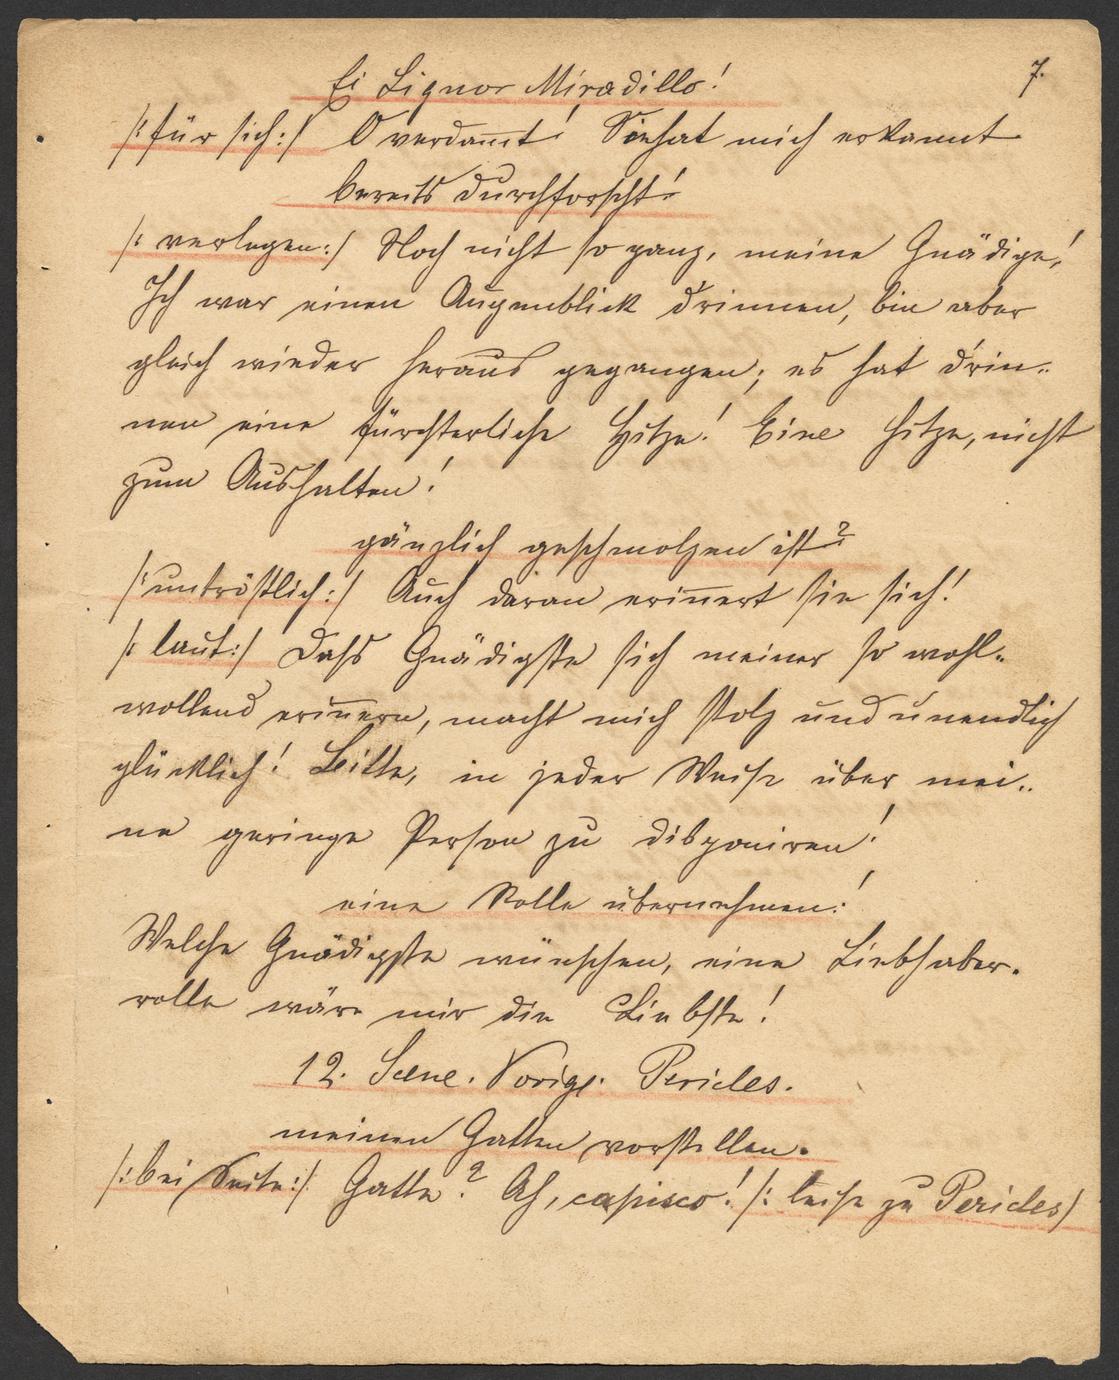 7.
Ei Signor Miradillo!
/: für sich :/ O verdam̅t! Sie hat mich erkannt
bereits durchforscht!
/: verlegen :/ Noch nicht so ganz, meine Gnädige!
Ich war einen Augenblick drinnen, bin aber
gleich wieder heraus gegangen; es hat drin-
nen eine fürchterliche Hitze! Eine Hitze, nicht
zum Aushalten!
gänzlich geschmolzen ist?
/: untröstlich :/ Auch daran erin̅ert sie sich!
/: laut :/ Dass Gnädigste sich meiner so wohl-
wollend erin̅ern, macht mich stolz und unendlich
glücklich! Bitte, in jeder Weise über mei-
ne geringe Person zu disponiren!
eine Rolle übernehmen!
Welche Gnädigste wünschen, eine Liebhaber-
rolle wäre mir die Liebste!
12. Scene. Vorige. Pericles.
meinen Gatten vorstellen.
/: bei Seite :/ Gatte? Ah, capisco! /: leise zu Pericles)